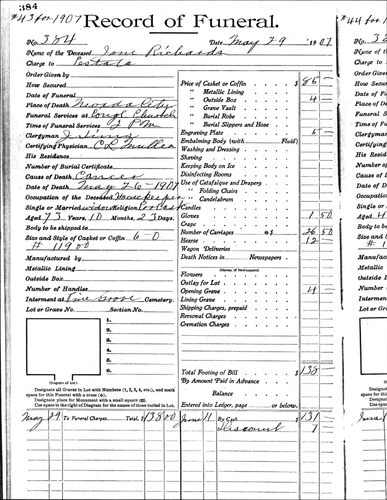 384
#43 for 1907
Record of Funeral.
No. 384 Date May 29 1907
Name of the Deceased Jane Richards
Charge to Estate
Order Given by
How Secured
Date of Funeral
Place of Death Nevada City
Funeral Services at Congl Church
Time of Funeral Services 2 P.M.
Clergyman J. Sims
Certifying Physician, C L Muller
His Residence,
Number of Burial Certificate
Cause of Death Cancer
Date of Death May 26 - 1907
Occupation of the Deceased Housekeeper
Single or Married widow Religion
Aged 73 Years, 10 Months, 23 Days.
Body to be shipped to
Size and Style of Casket or Coffin 6-0
# 119 00
Manufactured by
Metallic Lining
Outside Box
Number of Handles
Interment at Pine Grove Cemetery.
Lot or Grave No. Section No.
1.
2.
3.
4.
5.
6.
(Diagram of Lot.)
Designate all Graves in Lot with Numbers (1, 2, 3, 4, etc.), and mark
space for this Funeral with a cross (+).
Designate place for Monument with a small square (□).
Use space to the right of Diagram for the names of those buried in Lot.
Price of Casket or Coffin $ 85
" Metallic Lining
" Outside Box 4
" Grave Vault
" Burial Robe
" Burial Slippers and Hose
Engraving Plate 5
Embalming Body (with Fluid)
Washing and Dressing
Shaving
Keeping Body on Ice
Disinfecting Rooms
Use of Catafalque and Drapery
" Folding Chairs
" Candelabrum
Candles
Gloves 1 50
Crape
Number of Carriages @ $ 26 50
Hearse 12
Wagon Deliveries
Death Notices in Newspapers
(Names of Newspapers)
Flowers
Outlay for Lot
Opening Grave 4
Lining Grave
Shipping Charges, prepaid
Removal Charges
Cremation Charges
Total Footing of Bill $ 138
By Amount Paid in Advance
Balance
Entered into Ledger, page or below.
May 29 To Funeral Charges Total, $ 138 00
June 11 By Cash $ 131
Discount 7
#44 for